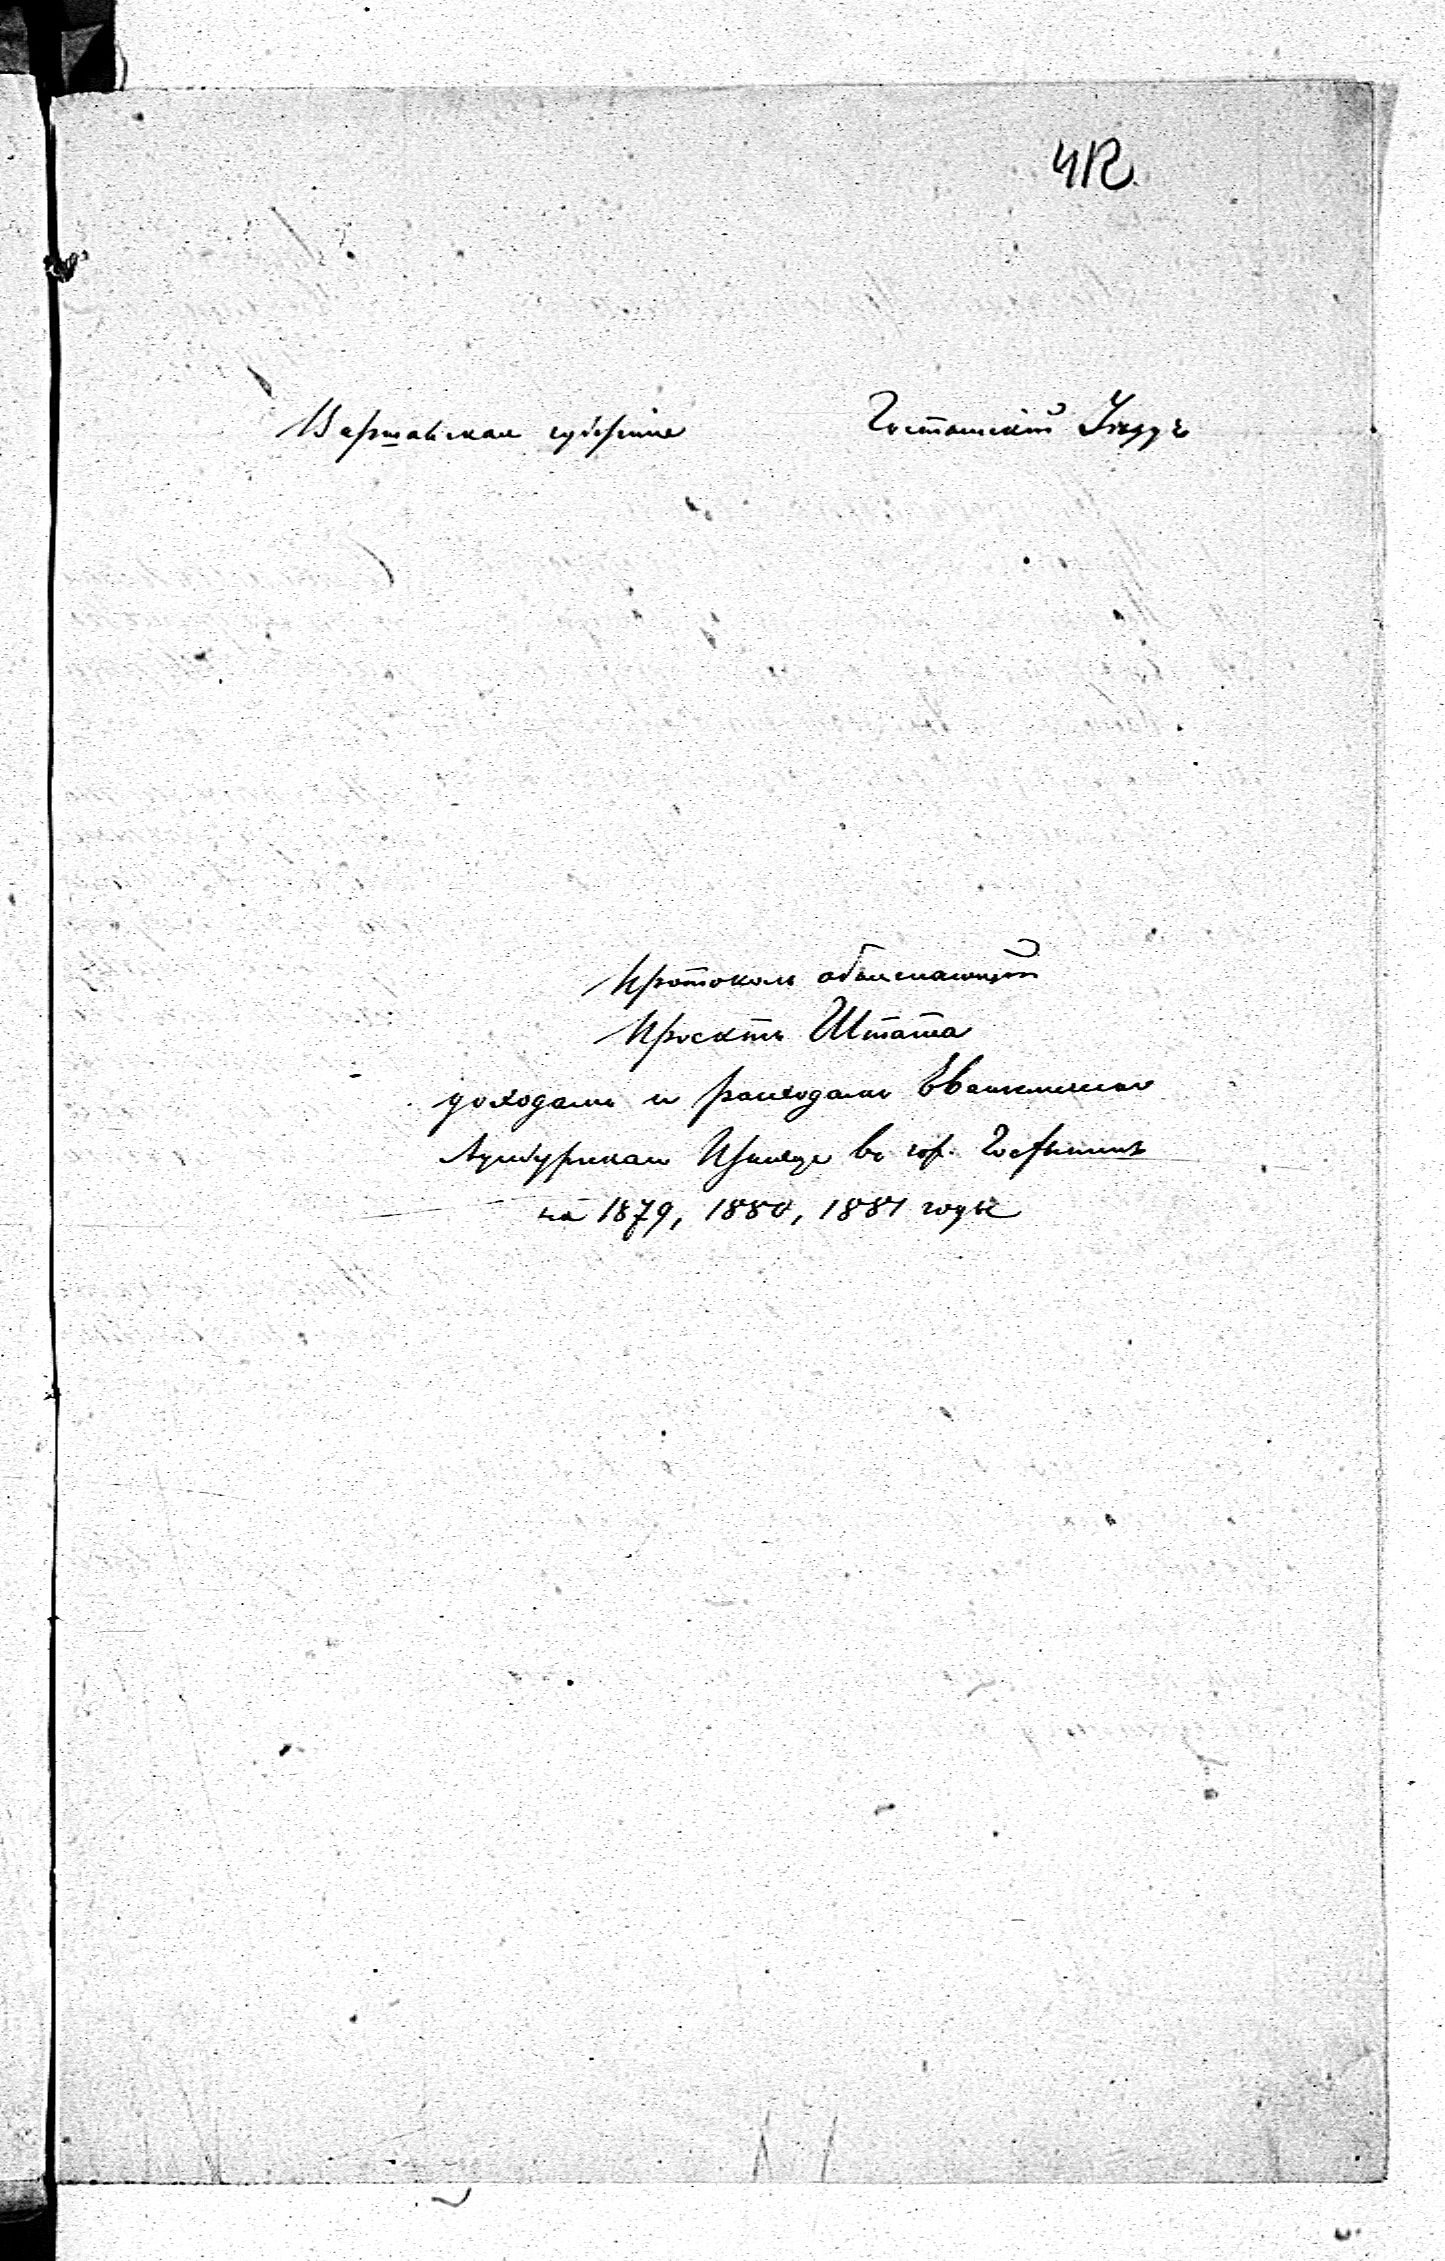 412
Варшавская губернія Гостынскій Уѣздъ
Протоколъ объясняющій
Проектъ Штата
доходамъ и расходамъ Евангелическо
Аугсбургская Приходъ въ гор. Гостынинѣ
на 1879, 1880, 1881 годы